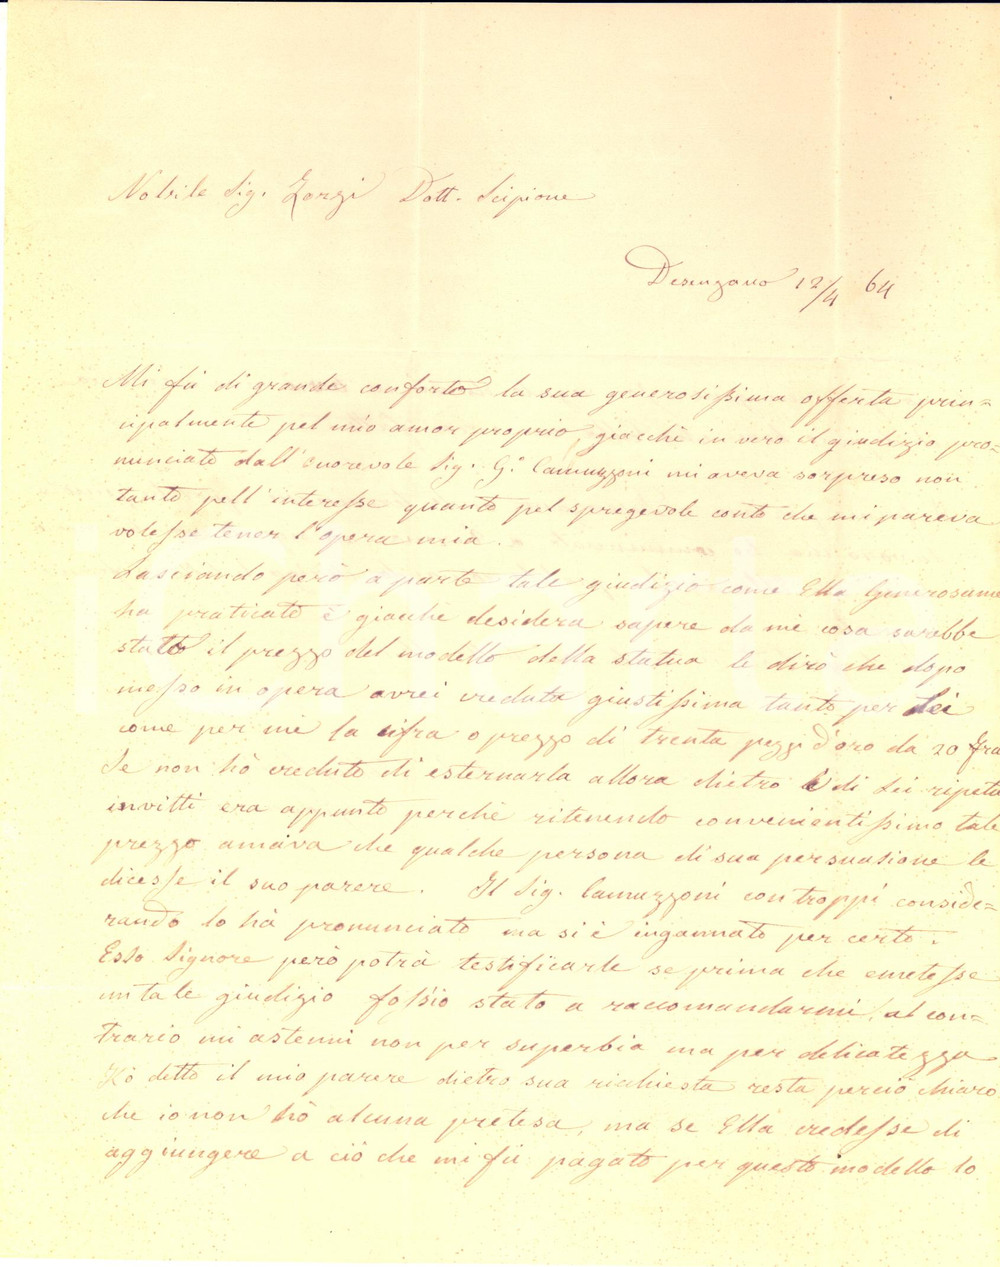 Nobile Sig. Zorzi Dott. Scipione
Desenzano 12/4 64
Mi fù di grande conforto la sua generosissima offerta prin=
cipalmente pel mio amor proprio, giacchè in vero il giudizio pro=
nunciato dall'onorevole Sig. G.e Camuzzoni mi aveva sorpreso non
tanto pell'interesse quanto pel spregevole conto che mi pareva
volesse tener l'opera mia.
Lasciando però a parte tale giudizio come Ella Generosame
ha praticato è giacche desidera sapere da me cosa sarebbe
stato il prezzo del modello della statua le dirò che dopo
messo in opera avrei creduta giustissima tanto per Lei
come per me la cifra o prezzo di trenta pezzi d'oro da 20 Fra
Se non hò creduto di esternarla allora dietro i di Lei ripetu
invitti era appunto perchè ritenendo convenientissimo tale
prezzo amava che qualche persona di sua persuasione le
dicesse il suo parere. Il Sig. Camuzzoni con troppi conside=
rando lo hà pronunciato ma si è ingannato per certo.
Esso Signore però potrà testificarle se prima che emetesse
un tale giudizio foss'io stato a raccomandarmi, al con=
trario mi astenni non per superbia ma per delicatezza
Hò detto il mio parere dietro sua richiesta resta perciò chiaro
che io non hò alcuna pretesa, ma se Ella credesse di
aggiungere a ciò che mi fù pagato per questo modello lo